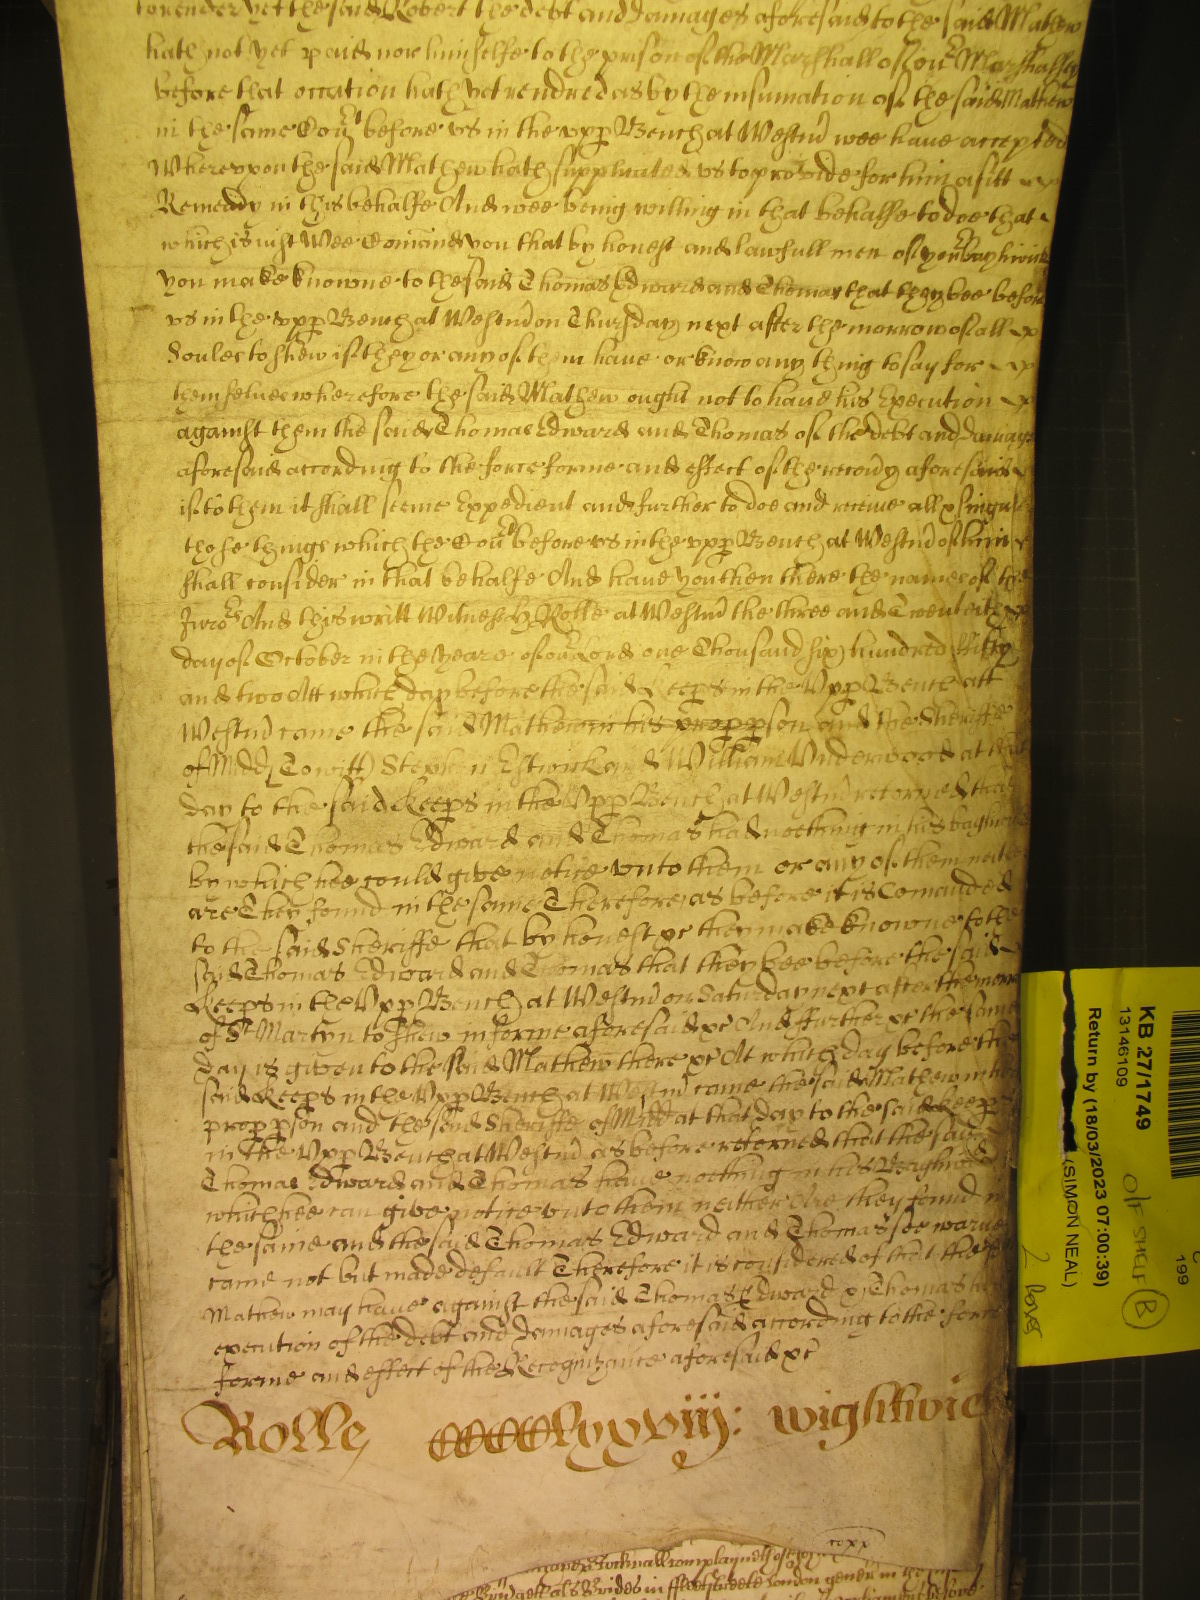 to render yet the said Robert the debt and damages aforesaid to the said Mathew
hath not yet paid nor himselfe to the prison of the Marshall of our Marshalsey
before that occation hath yet rendred as by the insinuation of the said Mathew
in the same Court before us in the upp Bench at Westm wee have accepted
Whereupon the said Mathew hath supplicated us to provide for him a fitt
Remeady in this behalfe And wee being willing in that behalfe to doe that
which is iust Wee Comand you that by honest and lawfull men of your baylwick
you make knowne to the said Thomas Edward and Thomas that they bee before
us in the upp Bench at Westm on Thursday next after the morrow of all
Soules to shew if they or any of them have or know any thing to say for
themselves wherefore the said Mathew ought not to have his Execution
against them the said Thomas Edward and Thomas of the debt and damages
aforesaid according to the force forme and effect of the recovy aforesaid
if to them it shall seeme Expedient and further to doe and receive all & singuler
those things which the Court before us in the upp Bench at Westm of him
shall consider in that behalfe And have you then there the names of the
Iuro And this writt Witnes H Rolle at Westm the three and Twentith
day of October in the yeare of our Lord one Thousand six hundred fifty
and two Att which day before the said Keeps in the Upp Bench att
Westm came the said Mathew in his propp pson and the Sheriffe
of Midd (To witt) Stephen Estwick and William Underwood at that
day to the said Keeps in the Upp Bench at Westm retorned that
the said Thomas Edward and Thomas had nothing in his baylwick
by which hee could give notice unto them or any of them neither
are They found in the same Therefore as before it is Comanded
to the said Sheriffe that by honest &c they make knowne to the
said Thomas Edward and Thomas that they bee before the said
Keeps in the Upp Bench at Westm on Saturday next after the morrow
of St Martyn to shew in forme aforesaid &c And further &c the same
day is given to the said Mathew there &c At which day before the
said Keeps in the Upp Bench at Westm came the said Mathew in his
propp pson and the said Sheriffe of Midd at that day to the said Keeps
in the Upp Bench at Westm as before retorned that the said
Thomas Edward and Thomas have nothing in his Baylwick
which hee can give notice unto them neither Are they found in
the same and the said Thomas Edward and Thomas soe warned
came not but made default Therefore it is considered of that the said
Mathew may have against the said Thomas Edward & Thomas his
execution of the debt and damages aforesaid according to the force
forme and effect of the Recognizance aforesaid &c
Rolle CCCCClxxviij: Wightwick
ccxx
complayneth of
als Brides in ffleetstreete London gener in the
KB 27/1749
13146109
Return by (18/03/2023 07:00:39)
(SIMON NEAL)
O/F SHELF B
2 boxes
199